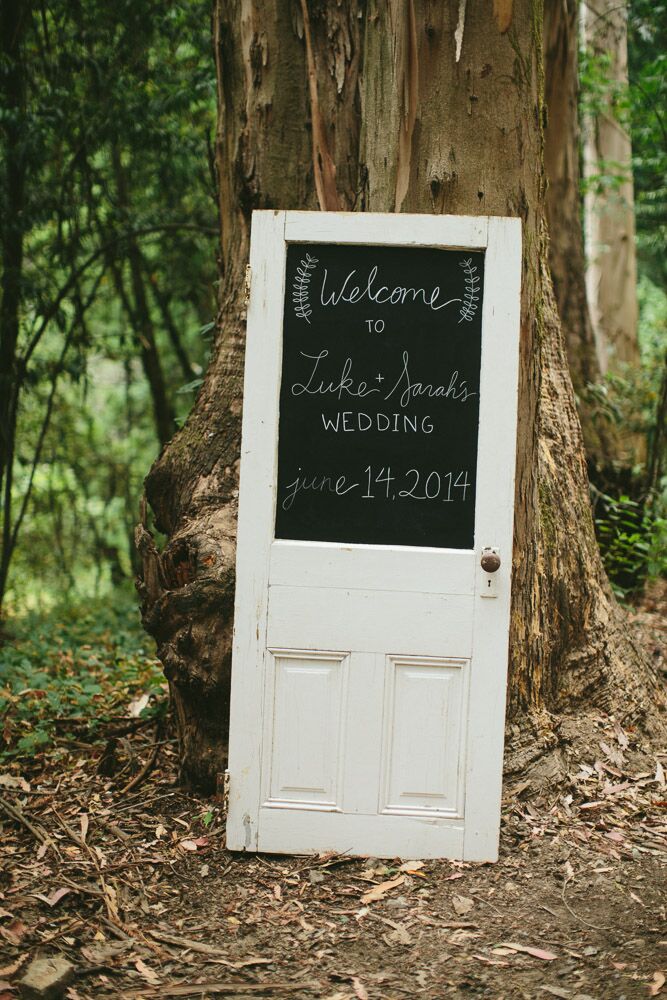 Welcome
TO
Luke + Sarah's
WEDDING
june 14, 2014